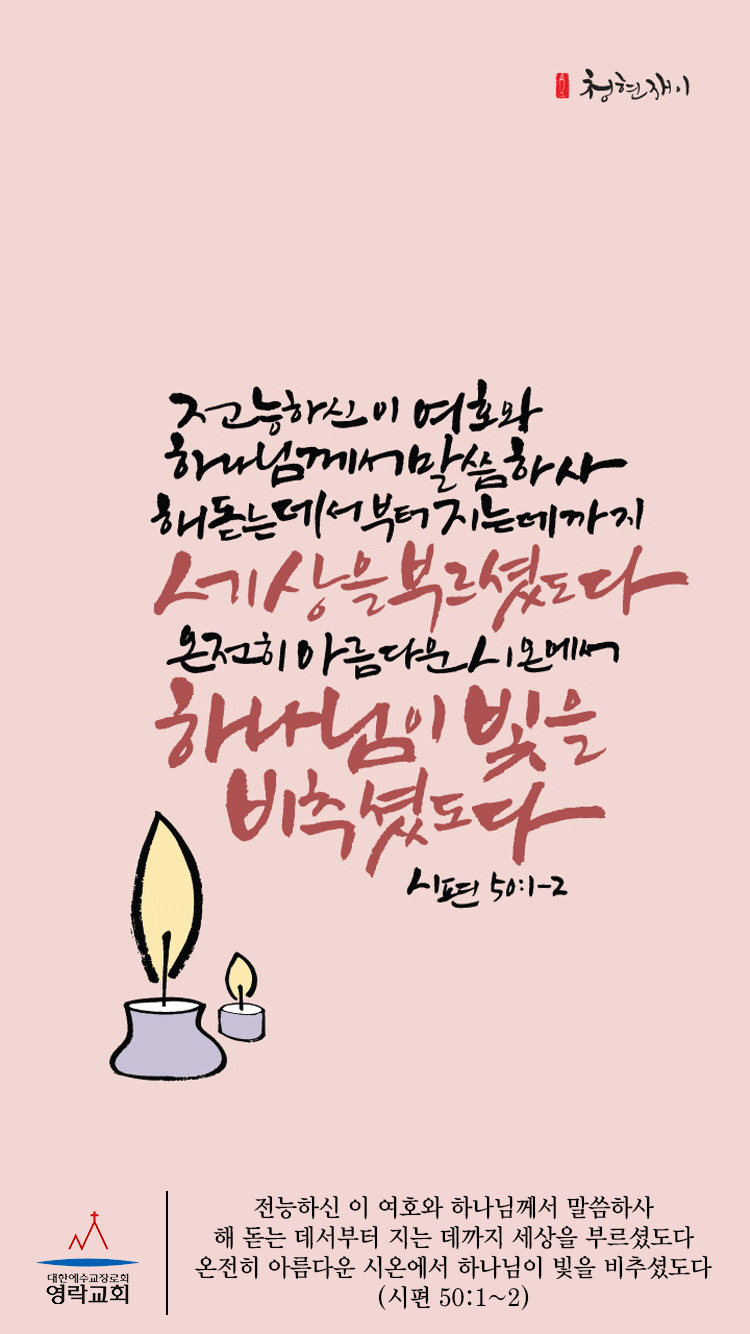 청현재이
전능하신 이 여호와
하나님께서 말씀하사
해 돋는 데서부터 지는 데까지
세상을 부르셨도다
온전히 아름다운 시온에서
하나님이 빛을
비추셨도다
시편 50:1-2
대한예수교장로회
영락교회
전능하신 이 여호와 하나님께서 말씀하사
해 돋는 데서부터 지는 데까지 세상을 부르셨도다
온전히 아름다운 시온에서 하나님이 빛을 비추셨도다
(시편 50:1~2)